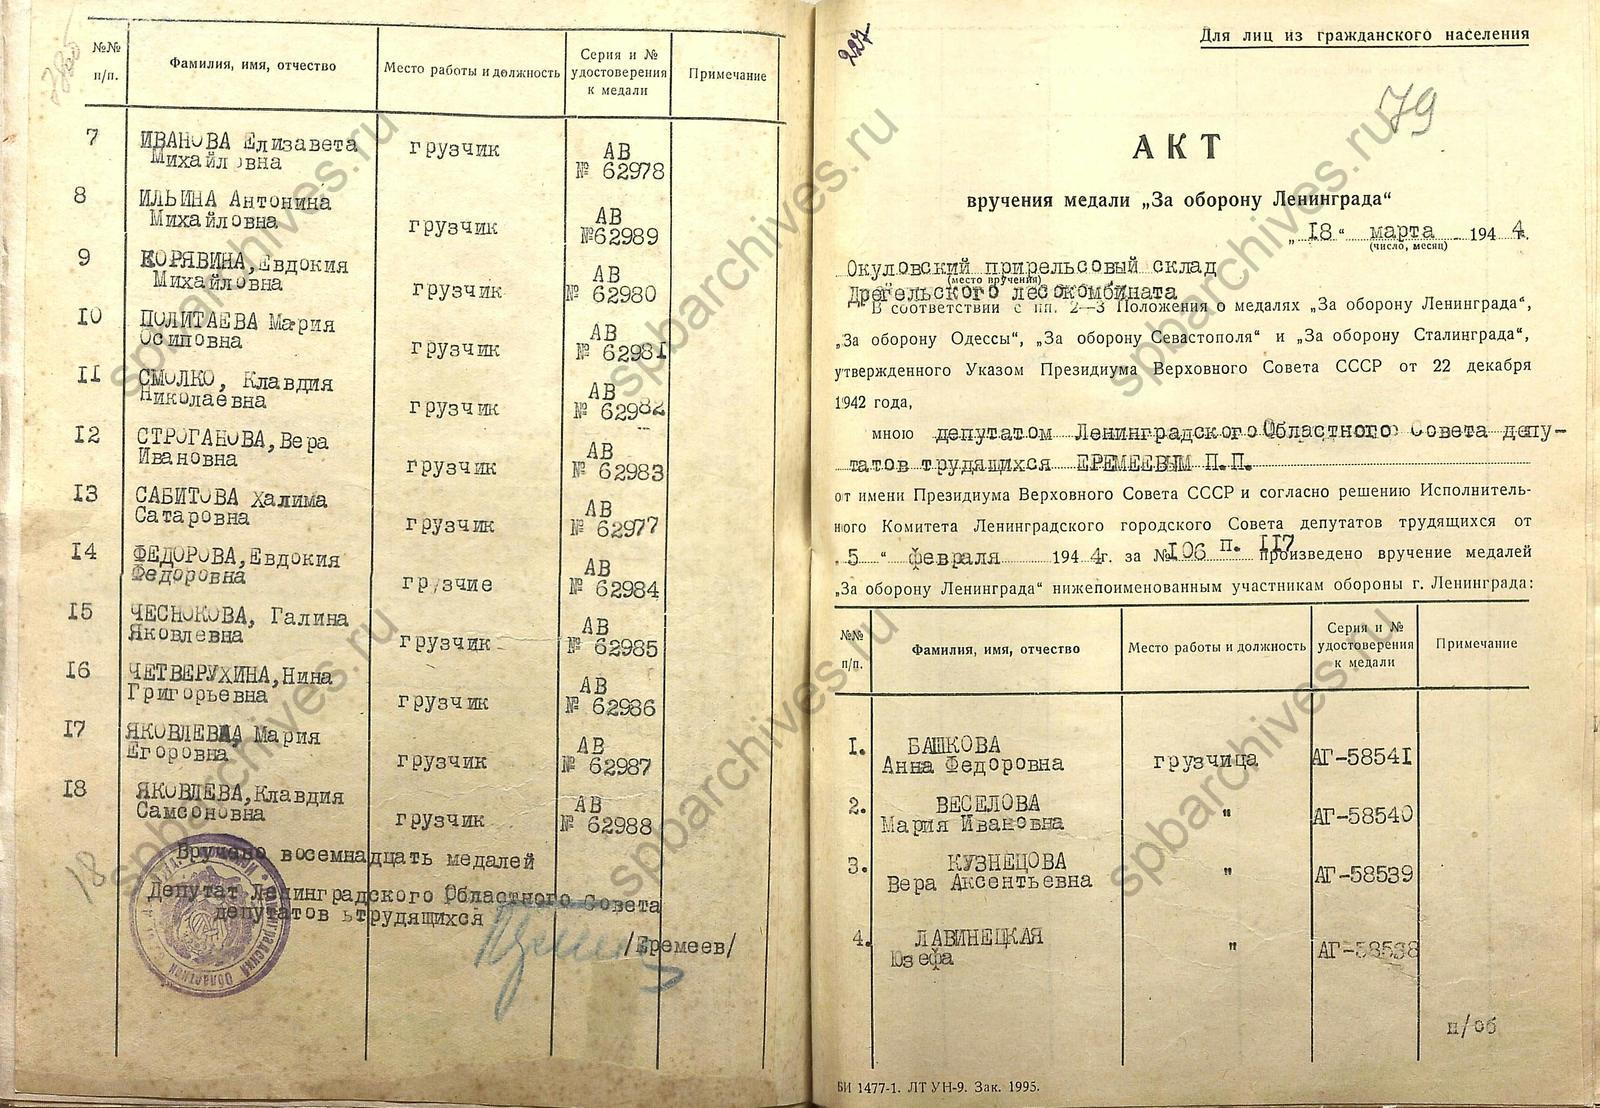 №№ п/п.
Фамилия, имя, отчество
Место работы и должность
Серия и № удостоверения к медали
Примечание
7 ИВАНОВА Елизавета грузчик АВ
Михайловна № 62978
8 ИЛЬИНА Антонина грузчик АВ
Михайловна №62989
9 КОРЯВИНА,Евдокия грузчик АВ
Михайловна № 62980
10 ПОЛИТАЕВА Мария грузчик АВ
Осиповна № 62981
11 СМОЛКО, Клавдия грузчик АВ
Николаевна № 62982
12 СТРОГАНОВА,Вера грузчик АВ
Ивановна № 62983
13 САБИТОВА Халима грузчик АВ
Сатаровна № 62977
14 ФЕДОРОВА,Евдокия грузчие АВ
Федоровна № 62984
15 ЧЕСНОКОВА, Галина грузчик АВ
Яковлевна № 62985
16 ЧЕТВЕРУХИНА,Нина грузчик АВ
Григорьевна № 62986
17 ЯКОВЛЕВА, Мария грузчик АВ
Егоровна № 62987
18 ЯКОВЛЕВА,Клавдия грузчик АВ
Самсоновна № 62988
18
Вручено восемнадцать медалей
Депутат Ленинградского Областного Совета
депутатов трудящихся
/Еремеев/
227
Для лиц из гражданского населения
79
АКТ
вручения медали „За оборону Ленинграда“
„18“ марта 1944г.
(число, месяц)
Окуловский прирельсовый склад
(место вручения)
Дрегельского лесокомбината
В соответствии с пп. 2—3 Положения о медалях „За оборону Ленинграда“,
„За оборону Одессы“, „За оборону Севастополя“ и „За оборону Сталинграда“,
утвержденного Указом Президиума Верховного Совета СССР от 22 декабря
1942 года,
мною депутатом Ленинградского Областного Совета депу-
татов трудящихся ЕРЕМЕЕВЫМ П.П.
от имени Президиума Верховного Совета СССР и согласно решению Исполнитель-
ного Комитета Ленинградского городского Совета депутатов трудящихся от
„5“ февраля 1944г. за №106 п. 117 произведено вручение медалей
„За оборону Ленинграда“ нижепоименованным участникам обороны г. Ленинграда:
№№ п/п.
Фамилия, имя, отчество
Место работы и должность
Серия и № удостоверения к медали
Примечание
1. БАШКОВА грузчица АГ-58541
Анна Федоровна
2. ВЕСЕЛОВА " АГ-58540
Мария Ивановна
3. КУЗНЕЦОВА " АГ-58539
Вера Аксентьевна
4. ЛАВИНЕЦКАЯ " АГ-58538
Юзефа
н/об
БИ 1477-1. ЛТ УН-9. Зак. 1995.
spbarchives.ru
spbarchives.ru
spbarchives.ru
spbarchives.ru
spbarchives.ru
spbarchives.ru